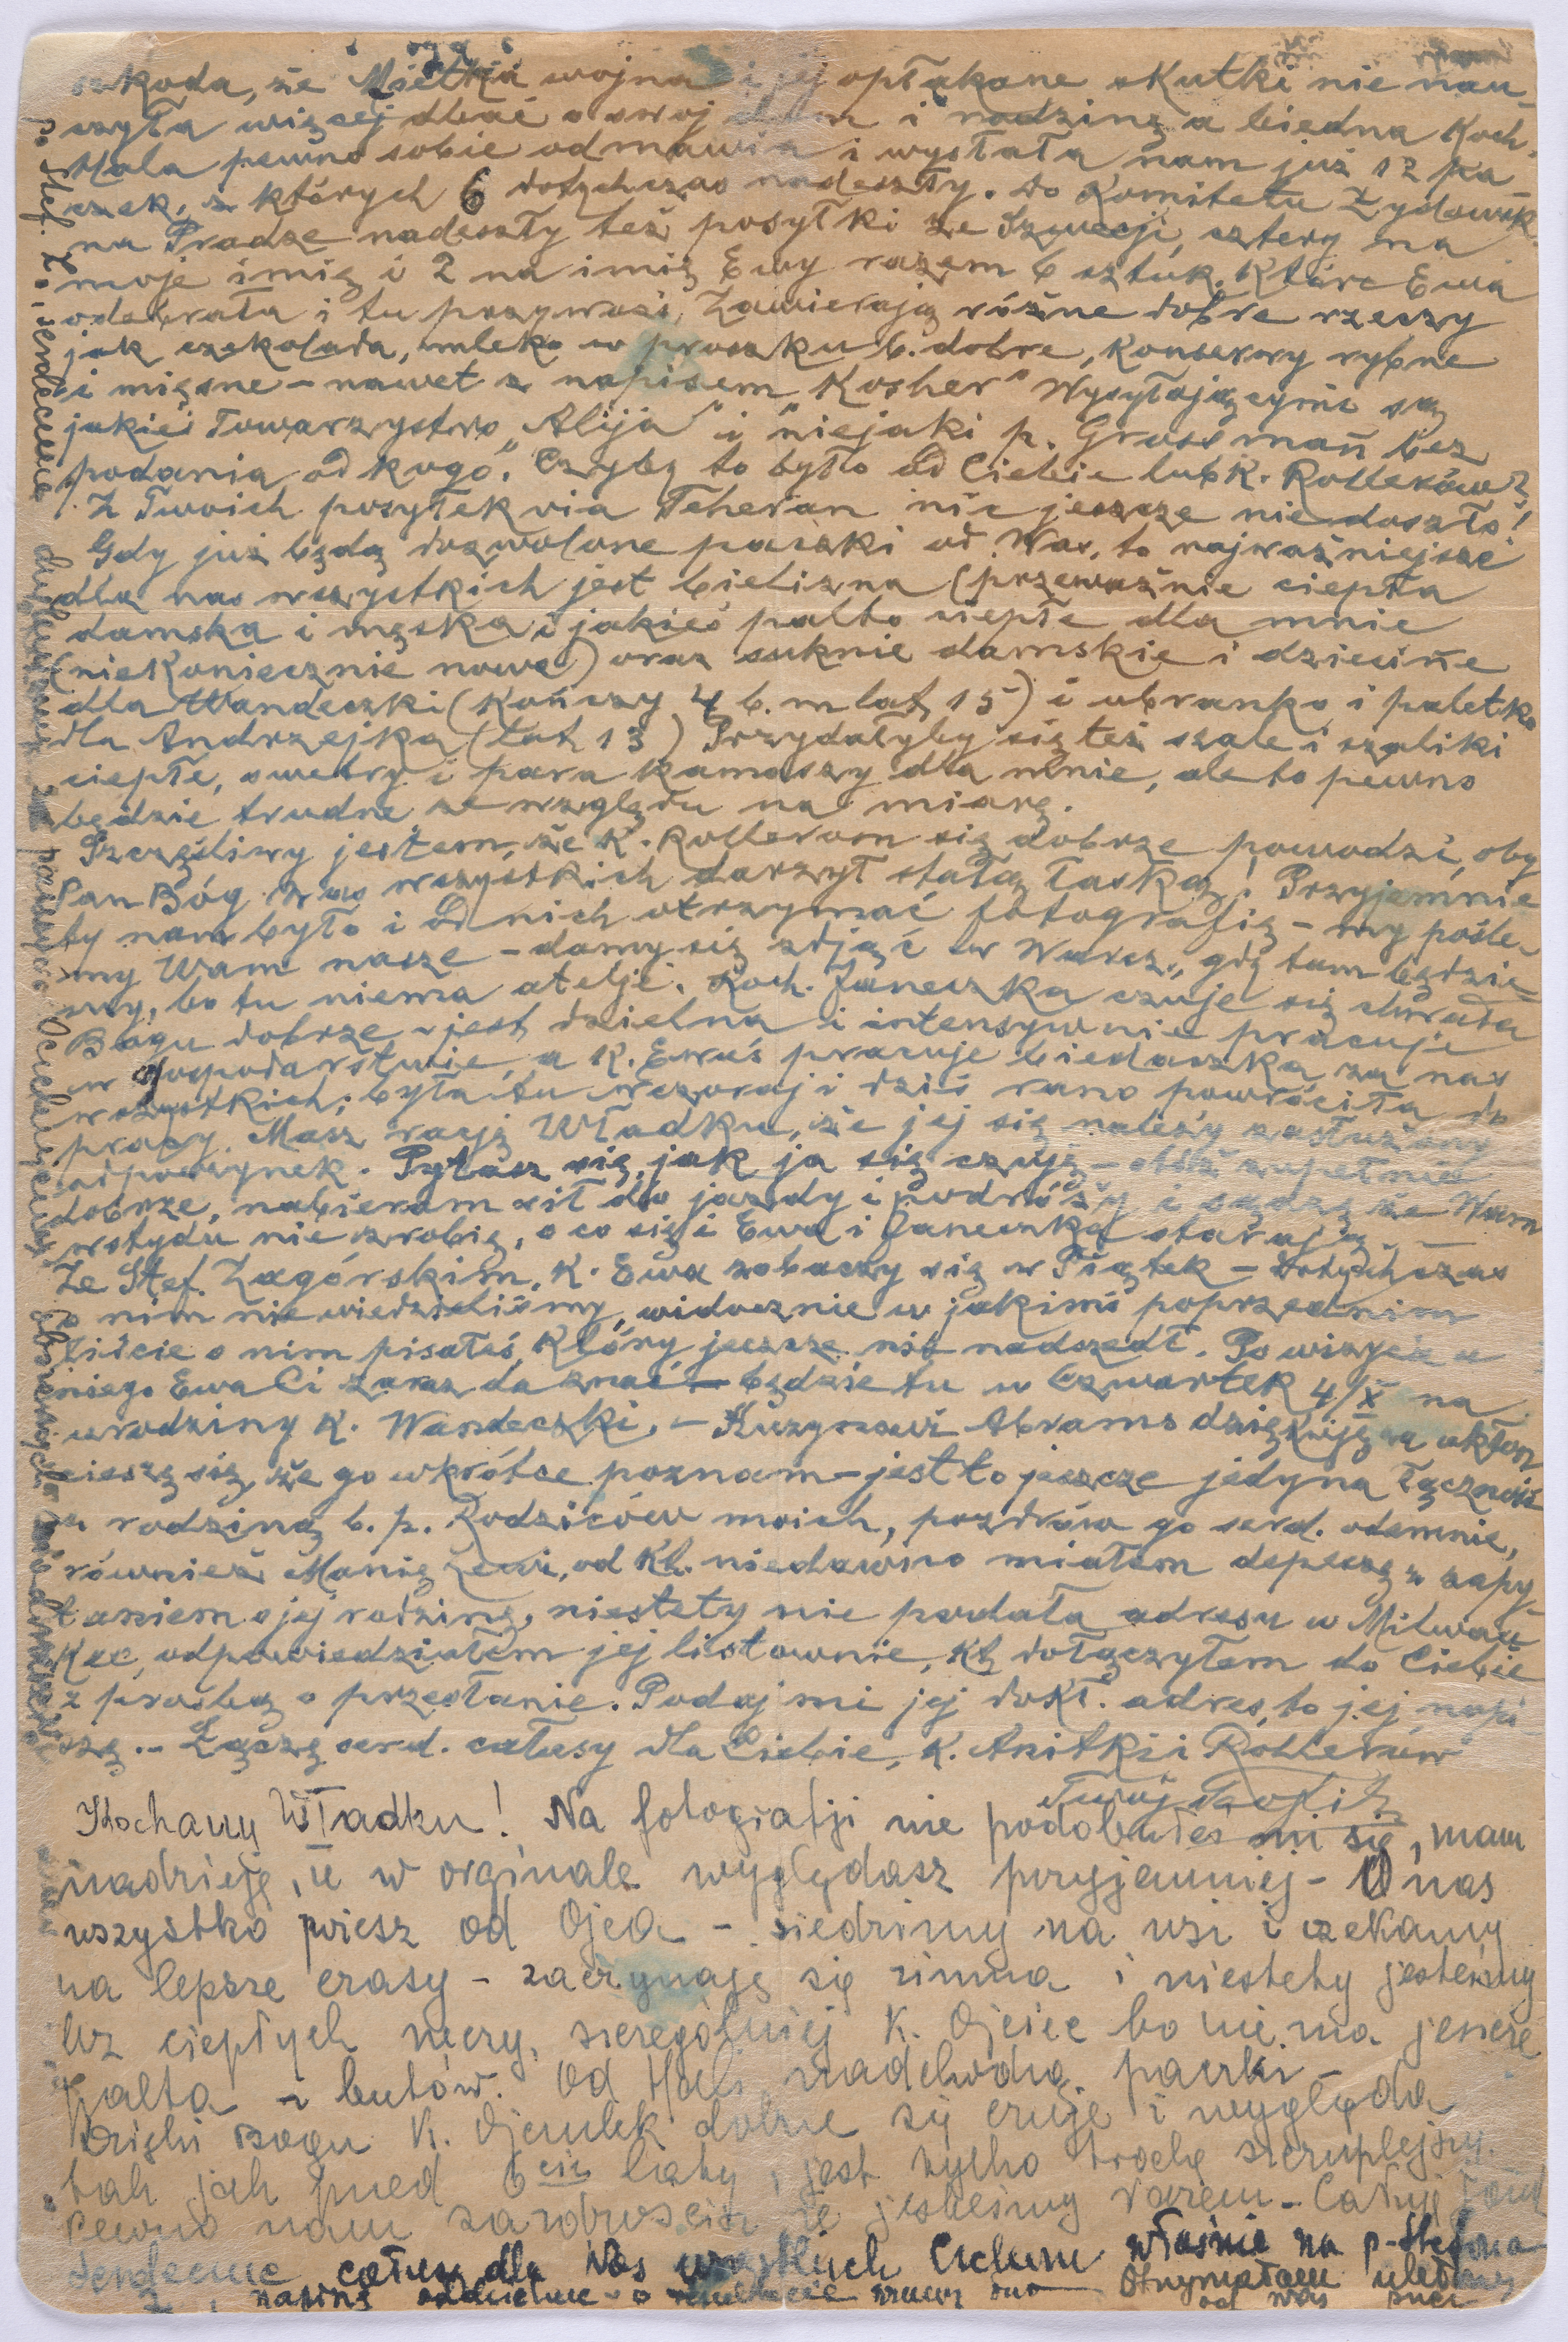 szkoda, że Mietka wojna i jej opłakane skutki nie nau-
czyła więcej dbać o swój dom i rodzinę a biedna Koch.
Hala pewno sobie odmawia i wysłała nam już 12 pa-
czek, z których 6 dotychczas nadeszły. Do Komitetu Żydowsk.
na Pradze nadeszły też posyłki ze Szwecji, cztery na
moje imię i 2 na imię Ewy razem 6 sztuk, które Ewa
odebrała i tu przywozi, Zawierają różne dobre rzeczy
jak czekolada, mleko w proszku b. dobre, konserwy rybne
i mięsne – nawet z napisem „Kosher" Wysyłającymi są
jakieś Towarzystwo „Alija" i niejaki p. Grossman bez
podania od kogo. Czyby to było od Ciebie lub K. Rollerów?
Z Twoich posyłek via Teheran nic jeszcze nie doszło!
Gdy już będą dozwolone paczki od Was, to najważniejsze
dla nas wszystkich jest bielizna (przeważnie ciepła
damska i męska i jakieś palto ciepłe dla mnie
(niekoniecznie nowe) oraz suknie damskie i dziecinne
dla Wandeczki (kończy 4 b.m lat 15) i ubranko i paletko
dla Andrzejka (lat 13) Przydałyby się też szale i szaliki
ciepłe, swetry i para kamaszy dla mnie, ale to pewno
będzie trudne ze względu na miarę.
Szczęśliwy jestem, że K. Rollerom się dobrze powodzi, oby
Pan Bóg Was wszystkich darzył stałą łaską! Przyjemnie
by nam było i od nich otrzymać fotografię – my pośle-
my Wam nasze – damy się zdjąć w Warsz., gdy tam będzie-
my, bo tu niema atelje. Koch. Janeczka czuje się chwała
Bogu dobrze – jest dzielna i intensywnie pracuje
w gospodarstwie, a K. Ewuś pracuje biedaczka za nas
wszystkich; była tu wczoraj i dziś rano powróciła do
pracy. Masz rację Władku, że jej się należy zasłużony
odpoczynek. Pytasz się, jak ja się czuję – otóż zupełnie
dobrze, nabieram sił do jazdy i podróży i sądzę że Wam
wstydu nie zrobię, o co się i Ewa i Janeczka starają. –
Ze Stef. Zagórskim, K. Ewa zobaczy się w Piątek – Dotychczas
o nim nie wiedzieliśmy, widocznie w jakimś poprzednim
liście o nim pisałeś, który jeszcze nie nadszedł. Po wizycie u
niego Ewa Ci zaraz da znać – będzie tu w Czwartek 4/X na
urodziny K. Wandeczki. – Kuzynowi Abrams dziękuję za ukłon
cieszę się, że go wkrótce poznam – jest to jeszcze jedyna łączność
z rodziną b. p. Rodziców moich, pozdrów go serd. odemnie,
również Manię, od kt. niedawno miałem depeszę z zapy-
taniem o jej rodzinę, niestety nie podała adresu w Milwau-
kee, odpowiedziałem jej listownie, kt dołączyłem do Ciebie
z prośbą o przesłanie. Podaj mi jej dokł. adres, to jej napi-
szę. – Łączę serd. całusy dla Ciebie, K. Anitki i Rollerów
Twój Teofil
Kochany Władku! Na fotografji nie podobałeś mi się, mam
nadzieję, że w orginale wyglądasz przyjemniej – U nas
wszystko wiesz od Ojca – siedzimy na wsi i czekamy
na lepsze czasy – zaczynają się zimna i niestety jesteśmy
bez ciepłych rzeczy, szczególniej K. Ojciec bo nie ma jeszcze
palta i butów. Od Hali nadchodzą paczki –
Dzięki Bogu K. Ojculek dobrze się czuje i wygląda
tak jak przed 6cių laty, jest tylko trochę szczuplejszy.
Pewno nam zazdrościsz że jesteśmy razem – Całuję Cię
serdecznie całusy dla Was wszystkich właśnie na p. Stefana
napiszę oddzielnie – o Otrzymałam od Was
p. Stef. Z. i serdecznie